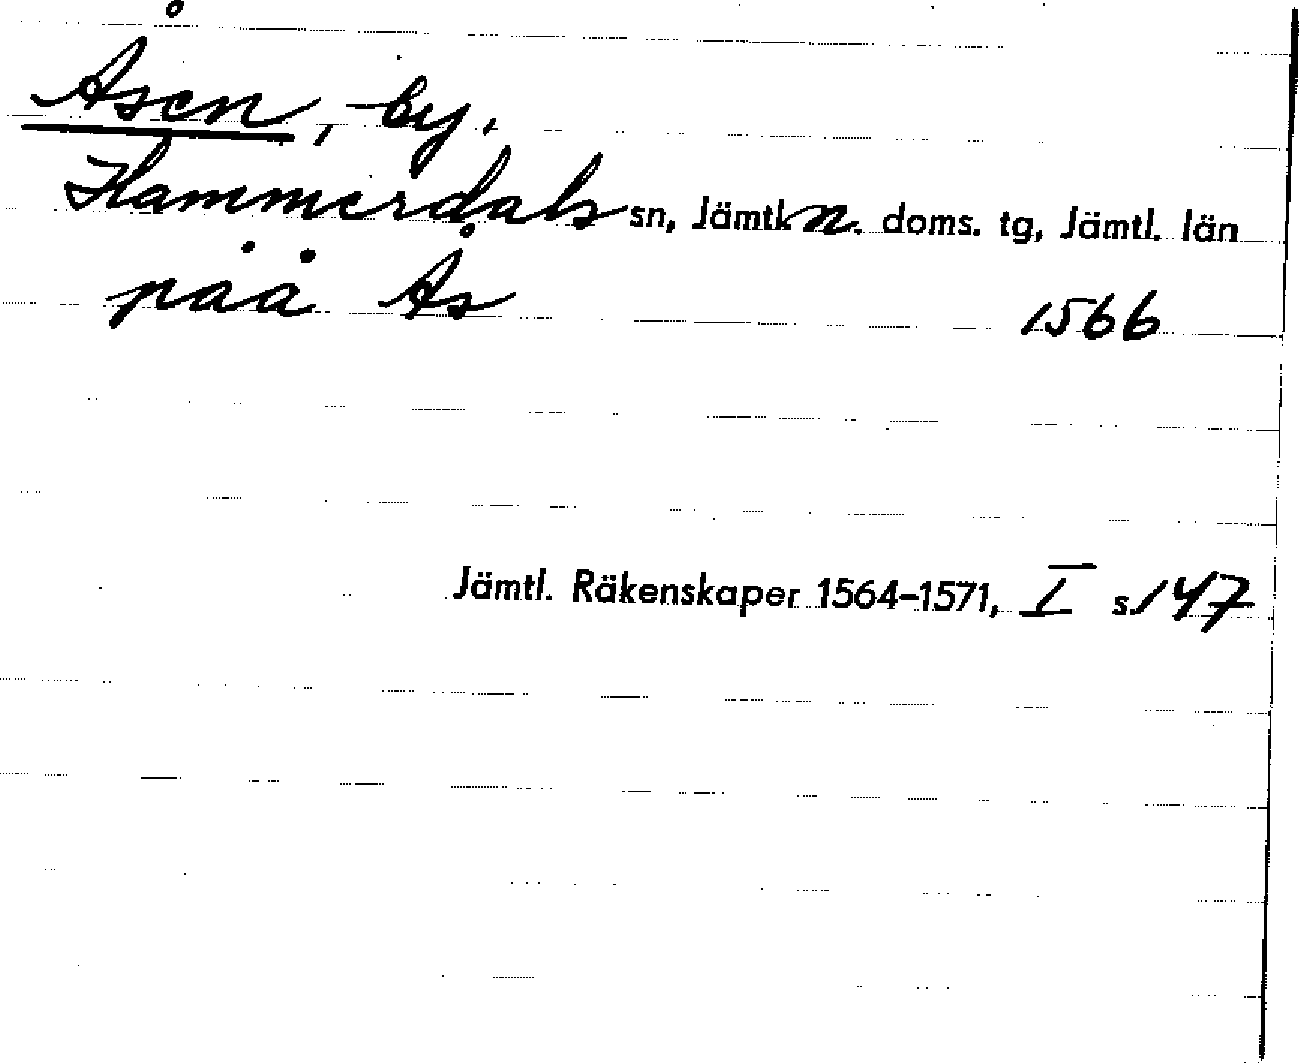 Åsen, by.
Hammerdals sn, Jämtl. n. doms. tg, Jämtl. län
påå Ås 1566
Jämtl. Räkenskaper 1564-1571, I s. 147